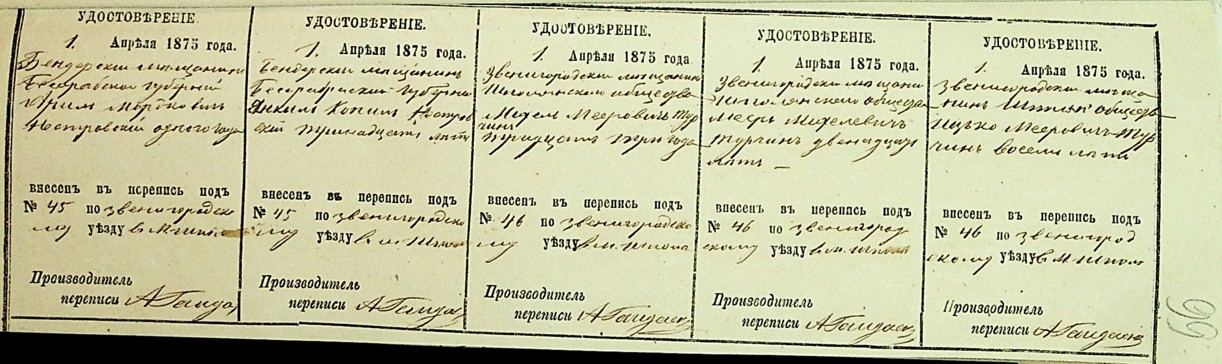 УДОСТОВѢРЕНІЕ.
1. Апрѣля 1875 года.
Бендерскій мѣщанинъ
Бессарабской губерніи
Мортковъ
Нестровскій одного года
внесенъ въ перепись подъ
№ 45 по звенигородско
му уѣзду в м. Шпола
Производитель
переписи А Гайдае
УДОСТОВѢРЕНІЕ.
1. Апрѣля 1875 года.
Бендерскій мѣщанинъ
Бессарабской губерніи
Янкель Копелъ Нестров
скій тринадцати лѣтъ
внесенъ въ перепись подъ
№ 45 по звенигородско
му уѣзду в м. Шпола
Производитель
переписи А Гайдае
УДОСТОВѢРЕНІЕ.
1. Апрѣля 1875 года.
Звенигородскій мѣщанинъ
Шполянскаго общества
Мееровичъ Тур
чинъ
тридцати три года
внесенъ въ перепись подъ
№ 46 по звенигородско
му уѣзду в м. Шпола
Производитель
переписи А Гайдаев
УДОСТОВѢРЕНІЕ.
1. Апрѣля 1875 года.
Звенигородскій мѣщани
Шполянскаго общества
Мееръ Мителевичъ
Турчинъ двенадцать
лѣтъ —
внесенъ въ перепись подъ
№ 46 по звенигород
скому уѣзду в м. Шпола
Производитель
переписи А Гайдаев
УДОСТОВѢРЕНІЕ.
1. Апрѣля 1875 года.
Звенигородскій мѣща
нинъ Шполян общества
Ицько Мееровичъ Тур
чинъ восемь лѣтъ
внесенъ въ перепись подъ
№ 46 по звенигород
скому уѣзду в м Шпола
Производитель
переписи А Гайдаев
99